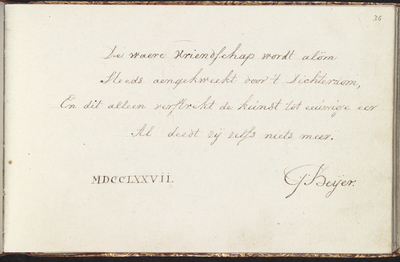 34
De waere Vriendschap wordt alöm
Steeds aengekweekt door 't Dichterdom,
En dit alleen verstrekt de kunst tot euwige eer
Al deedt zij zelfs niets meer.
MDCCLXXVII.
G Beijer.